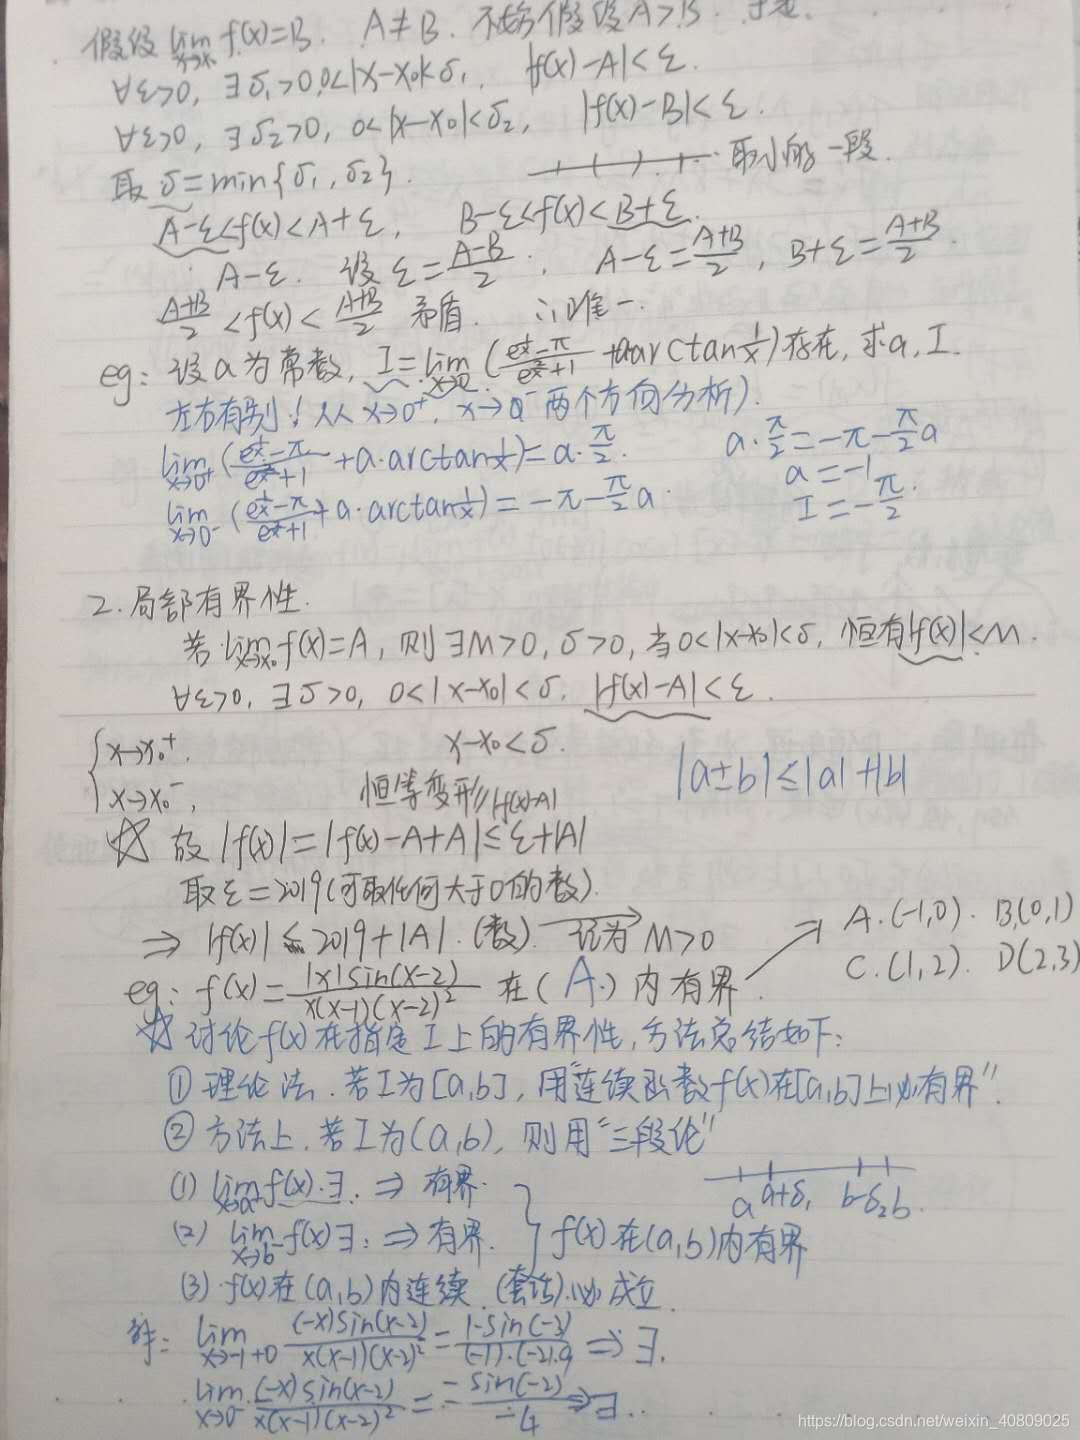 假设 lim x→x₀ f(x)=B. A≠B. 不妨假设A>B.
∀ε>0, ∃δ₁>0, 0<|x-x₀|<δ₁, |f(x)-A|<ε.
∀ε>0, ∃δ₂>0, 0<|x-x₀|<δ₂, |f(x)-B|<ε.
取 δ=min{δ₁,δ₂}. 取小的一段.
A-ε<f(x)<A+ε, B-ε<f(x)<B+ε.
A-ε. 设 ε=(A-B)/2. A-ε=(A+B)/2, B+ε=(A+B)/2.
(A+B)/2<f(x)<(A+B)/2 矛盾. ∴唯一.
eg: 设a为常数, I=lim x→0 ((e^(1/x)-π)/(e^(2/x)+1)+a·arctan 1/x)存在, 求a, I.
左右有别! (从 x→0⁺, x→0⁻ 两个方向分析).
lim x→0⁺ ((e^(1/x)-π)/(e^(2/x)+1)+a·arctan 1/x)=a·π/2. a·π/2=-π-π/2 a
a=-1
lim x→0⁻ ((e^(1/x)-π)/(e^(2/x)+1)+a·arctan 1/x)=-π-π/2 a. I=-π/2.
2.局部有界性.
若 lim x→x₀ f(x)=A, 则∃M>0, δ>0, 当0<|x-x₀|<δ, 恒有|f(x)|<M.
∀ε>0, ∃δ>0, 0<|x-x₀|<δ, |f(x)-A|<ε.
{ x→x₀⁺, x-x₀<δ.
x→x₀⁻, 恒等变形 |f(x)-A| |a±b|≤|a|+|b|
☆ 故 |f(x)|=|f(x)-A+A|≤ε+|A|
取ε=2019(可取任何大于0的数).
⇒ |f(x)|≤2019+|A|.(数) 记为 M>0 A.(-1,0). B.(0,1)
C.(1,2). D(2,3)
eg: f(x)=|x|sin(x-2)/(x(x-1)(x-2)²) 在(A.)内有界.
☆ 讨论f(x)在指定I上的有界性,方法总结如下:
① 理论法.若I为[a,b], 用"连续函数f(x)在[a,b]上必有界".
② 方法上.若I为(a,b), 则用"三段论"
(1) lim x→a⁺ f(x).∃. ⇒ 有界. a a+δ₁ b-δ₂ b.
(2) lim x→b⁻ f(x)∃. ⇒有界. } f(x)在(a,b)内有界
(3) f(x)在(a,b)内连续.(套话).必成立.
解: lim x→-1+0 (-x)sin(x-2)/(x(x-1)(x-2)²)=1·sin(-3)/((-1)·(-2)·9) ⇒ ∃.
lim x→0⁻ (-x)sin(x-2)/(x(x-1)(x-2)²)=-sin(-2)/-4 ⇒∃.
https://blog.csdn.net/weixin_40809025